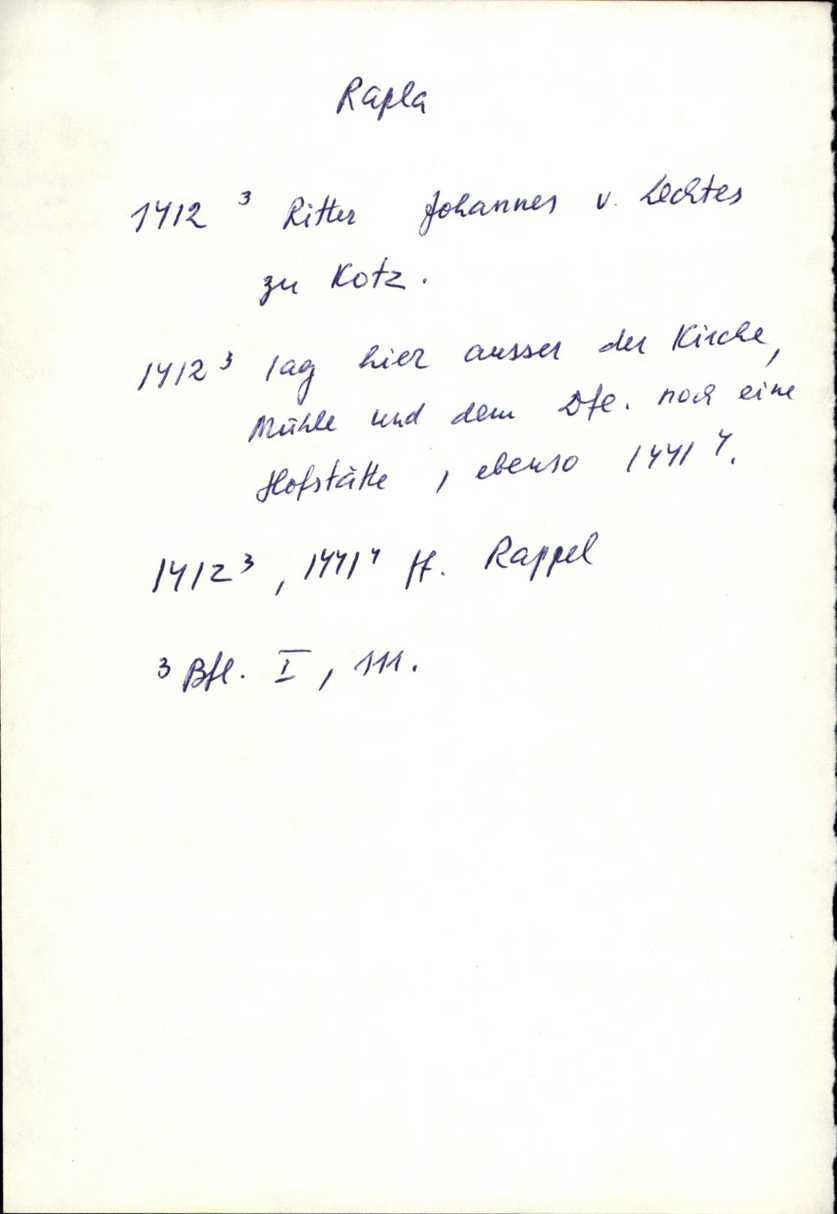 Rapla
1412 ³ Ritter Johannes v. Lechtes
zu Kotz.
1412 ³ lag hier ausser der Kirche,
Mühle und dem Dfe. noch eine
Hofstätte, ebenso 1441 ⁴.
1412 ³, 1441 ⁴ ff. Rappel
³ Bfl. I, 111.